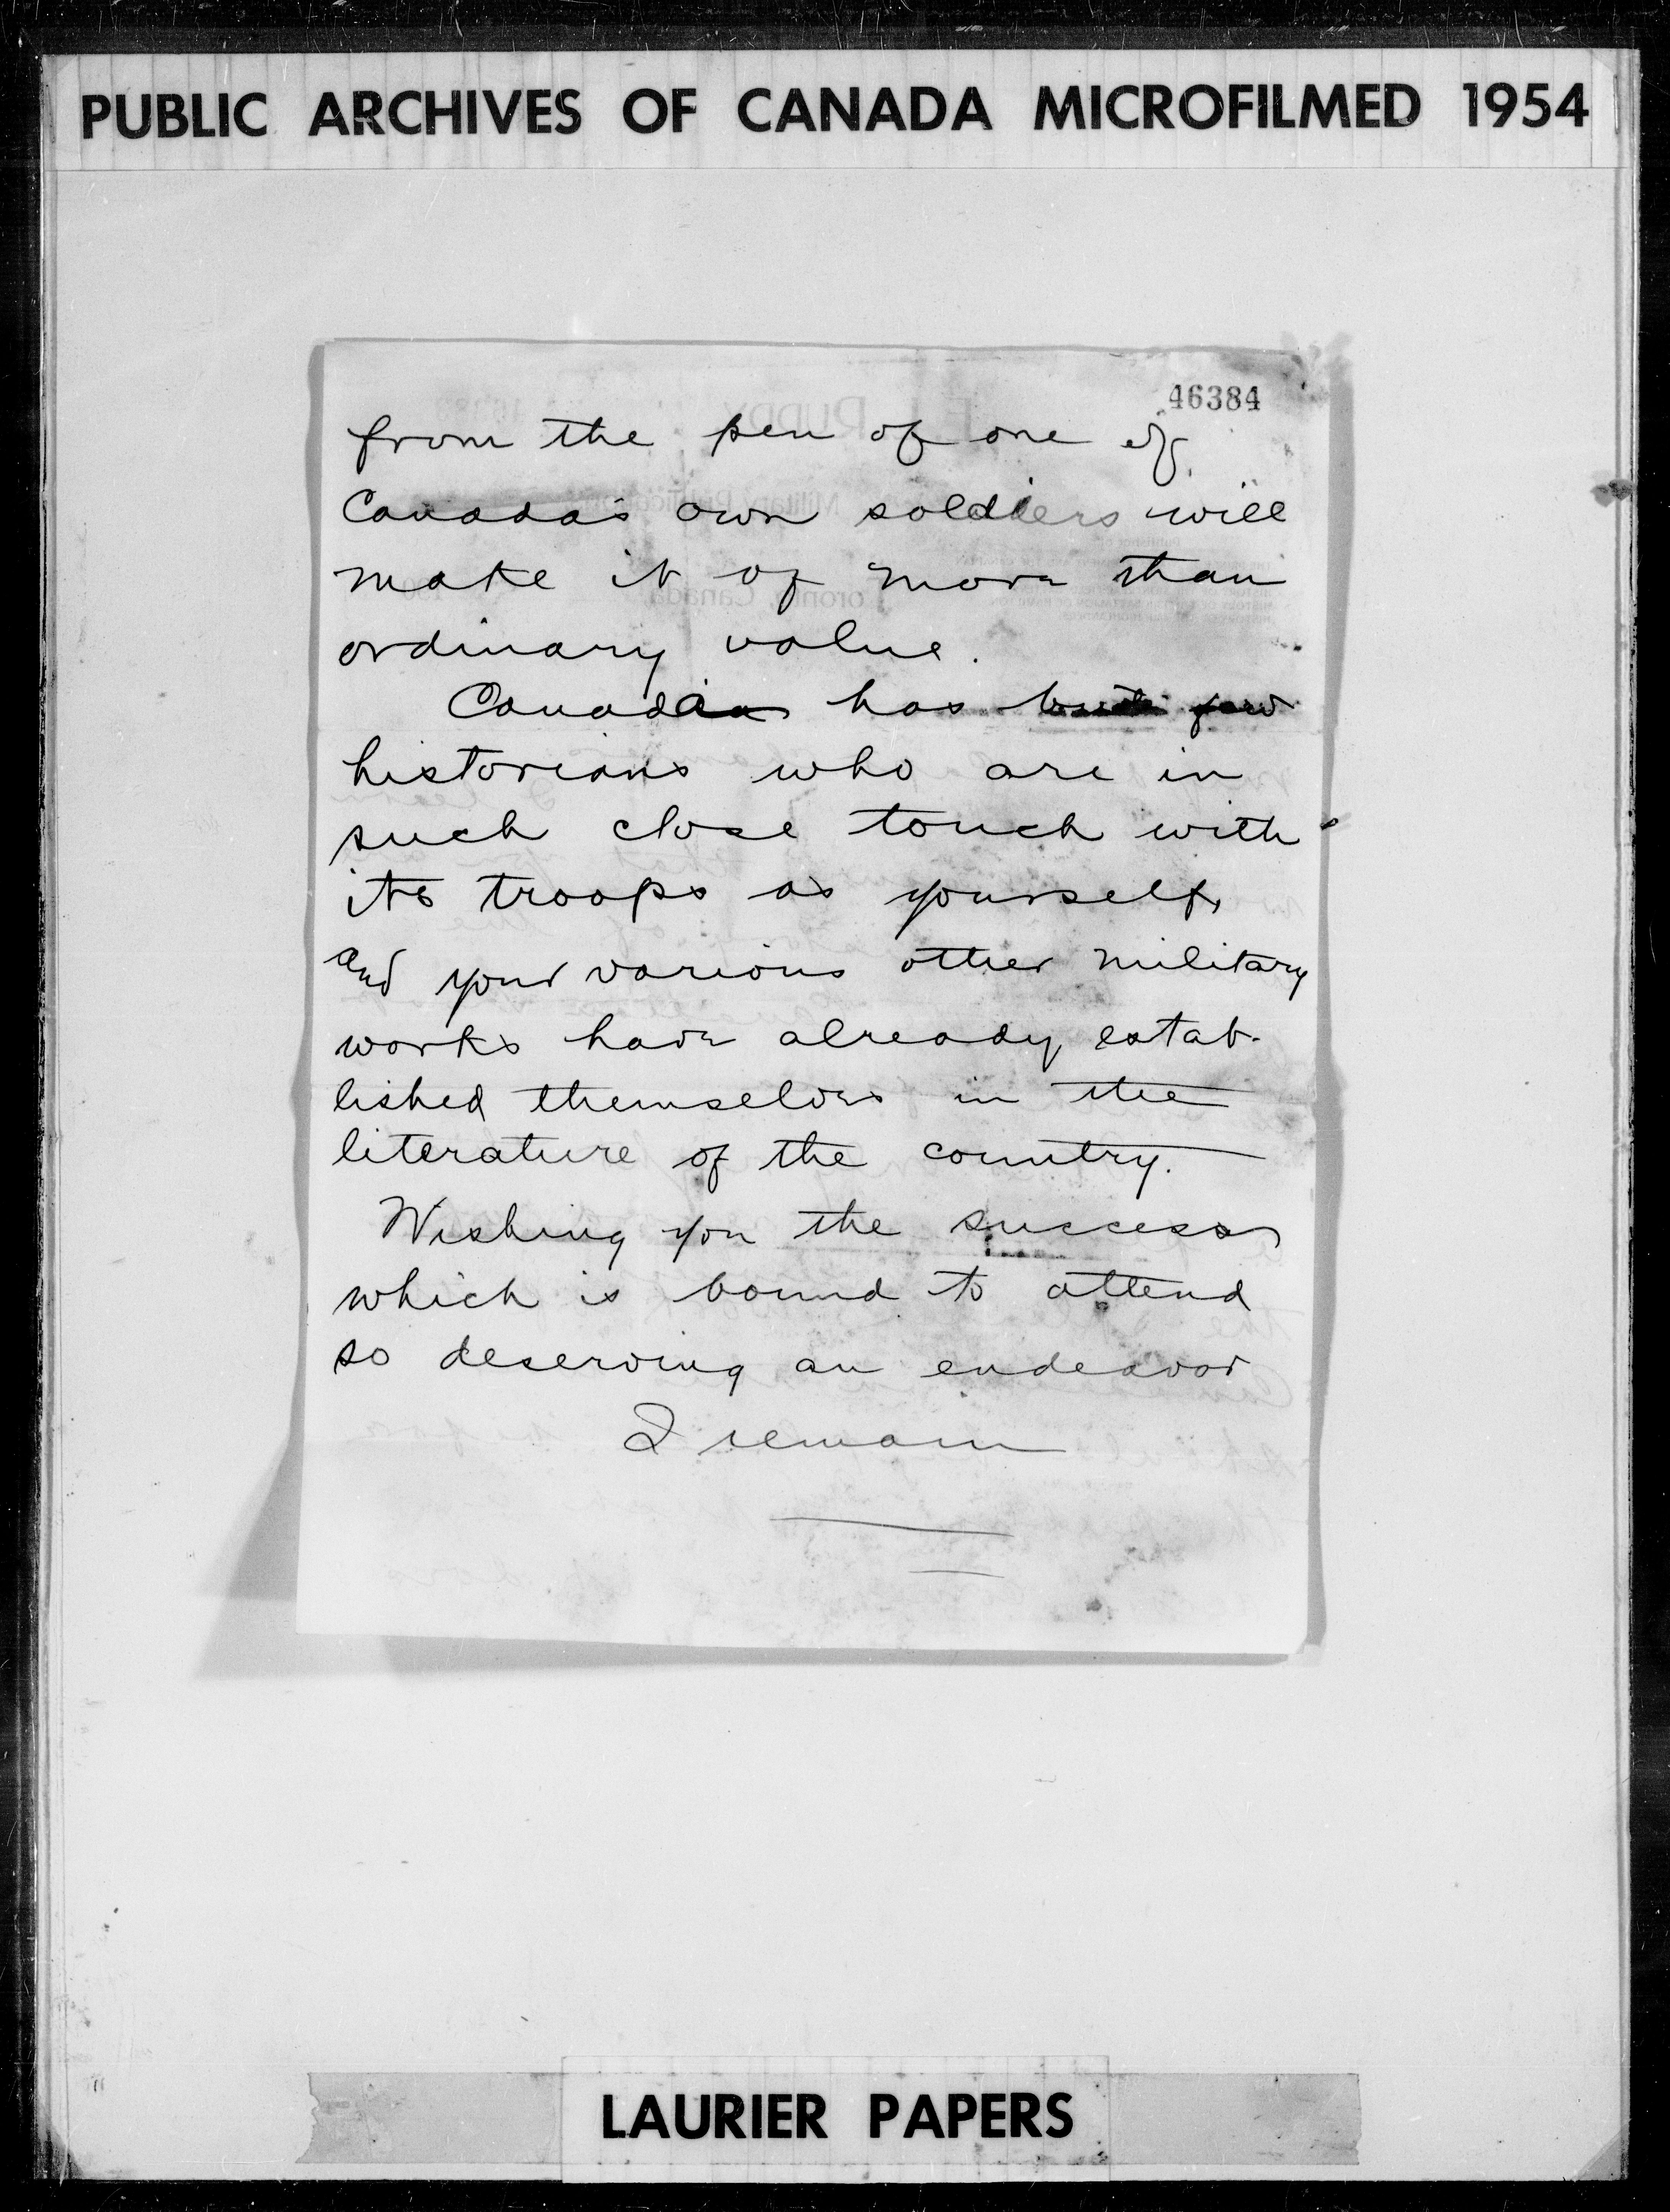 PUBLIC ARCHIVES OF CANADA MICROFILMED 1954
46384
from the pen of one of
Canada's own soldiers will
make it of more than
ordinary value.
Canada has but few
historians who are in
such close touch with
its troops as yourself,
and your various other military
works have already estab-
lished themselves in the
literature of the country.
Wishing you the success
which is bound to attend
so deserving an endeavor
I remain
LAURIER PAPERS